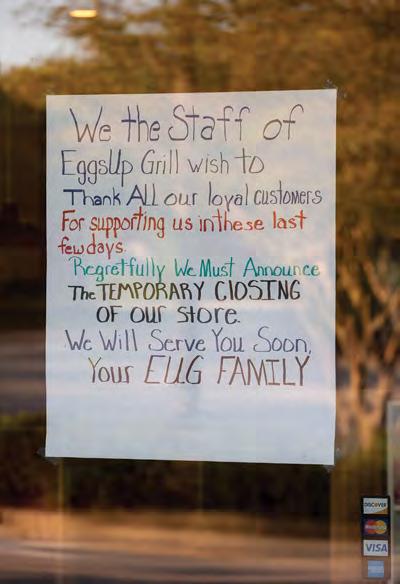 We the Staff of
EggsUp Grill wish to
Thank ALL our loyal customers
For supporting us in these last
few days.
Regretfully We Must Announce
The TEMPORARY ClOSING
OF our store.
We Will Serve You Soon,
Your EUG FAMILY
DISCOVER
MasterCard
VISA